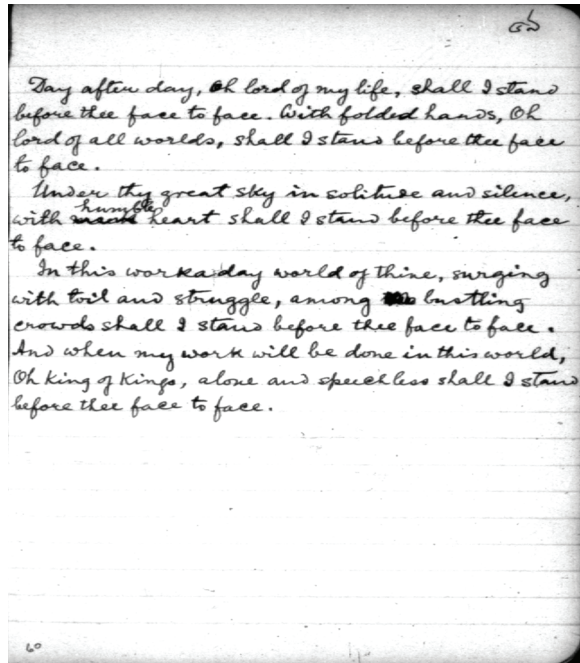 ৫৯
Day after day, Oh lord of my life, shall I stand
before thee face to face. With folded hands, Oh
lord of all worlds, shall I stand before thee face
to face.
Under thy great sky in solitude and silence,
with humble heart shall I stand before thee face
to face.
In this workaday world of thine, surging
with toil and struggle, among bustling
crowds shall I stand before thee face to face.
And when my work will be done in this world,
Oh King of Kings, alone and speechless shall I stand
before thee face to face.
60